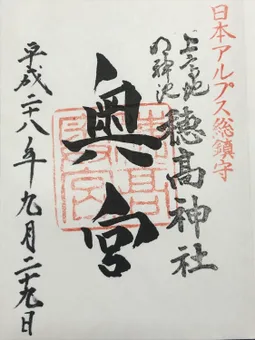 日本アルプス総鎮守
上高地
明神池
穂高神社
奥宮
平成二十八年九月二十九日